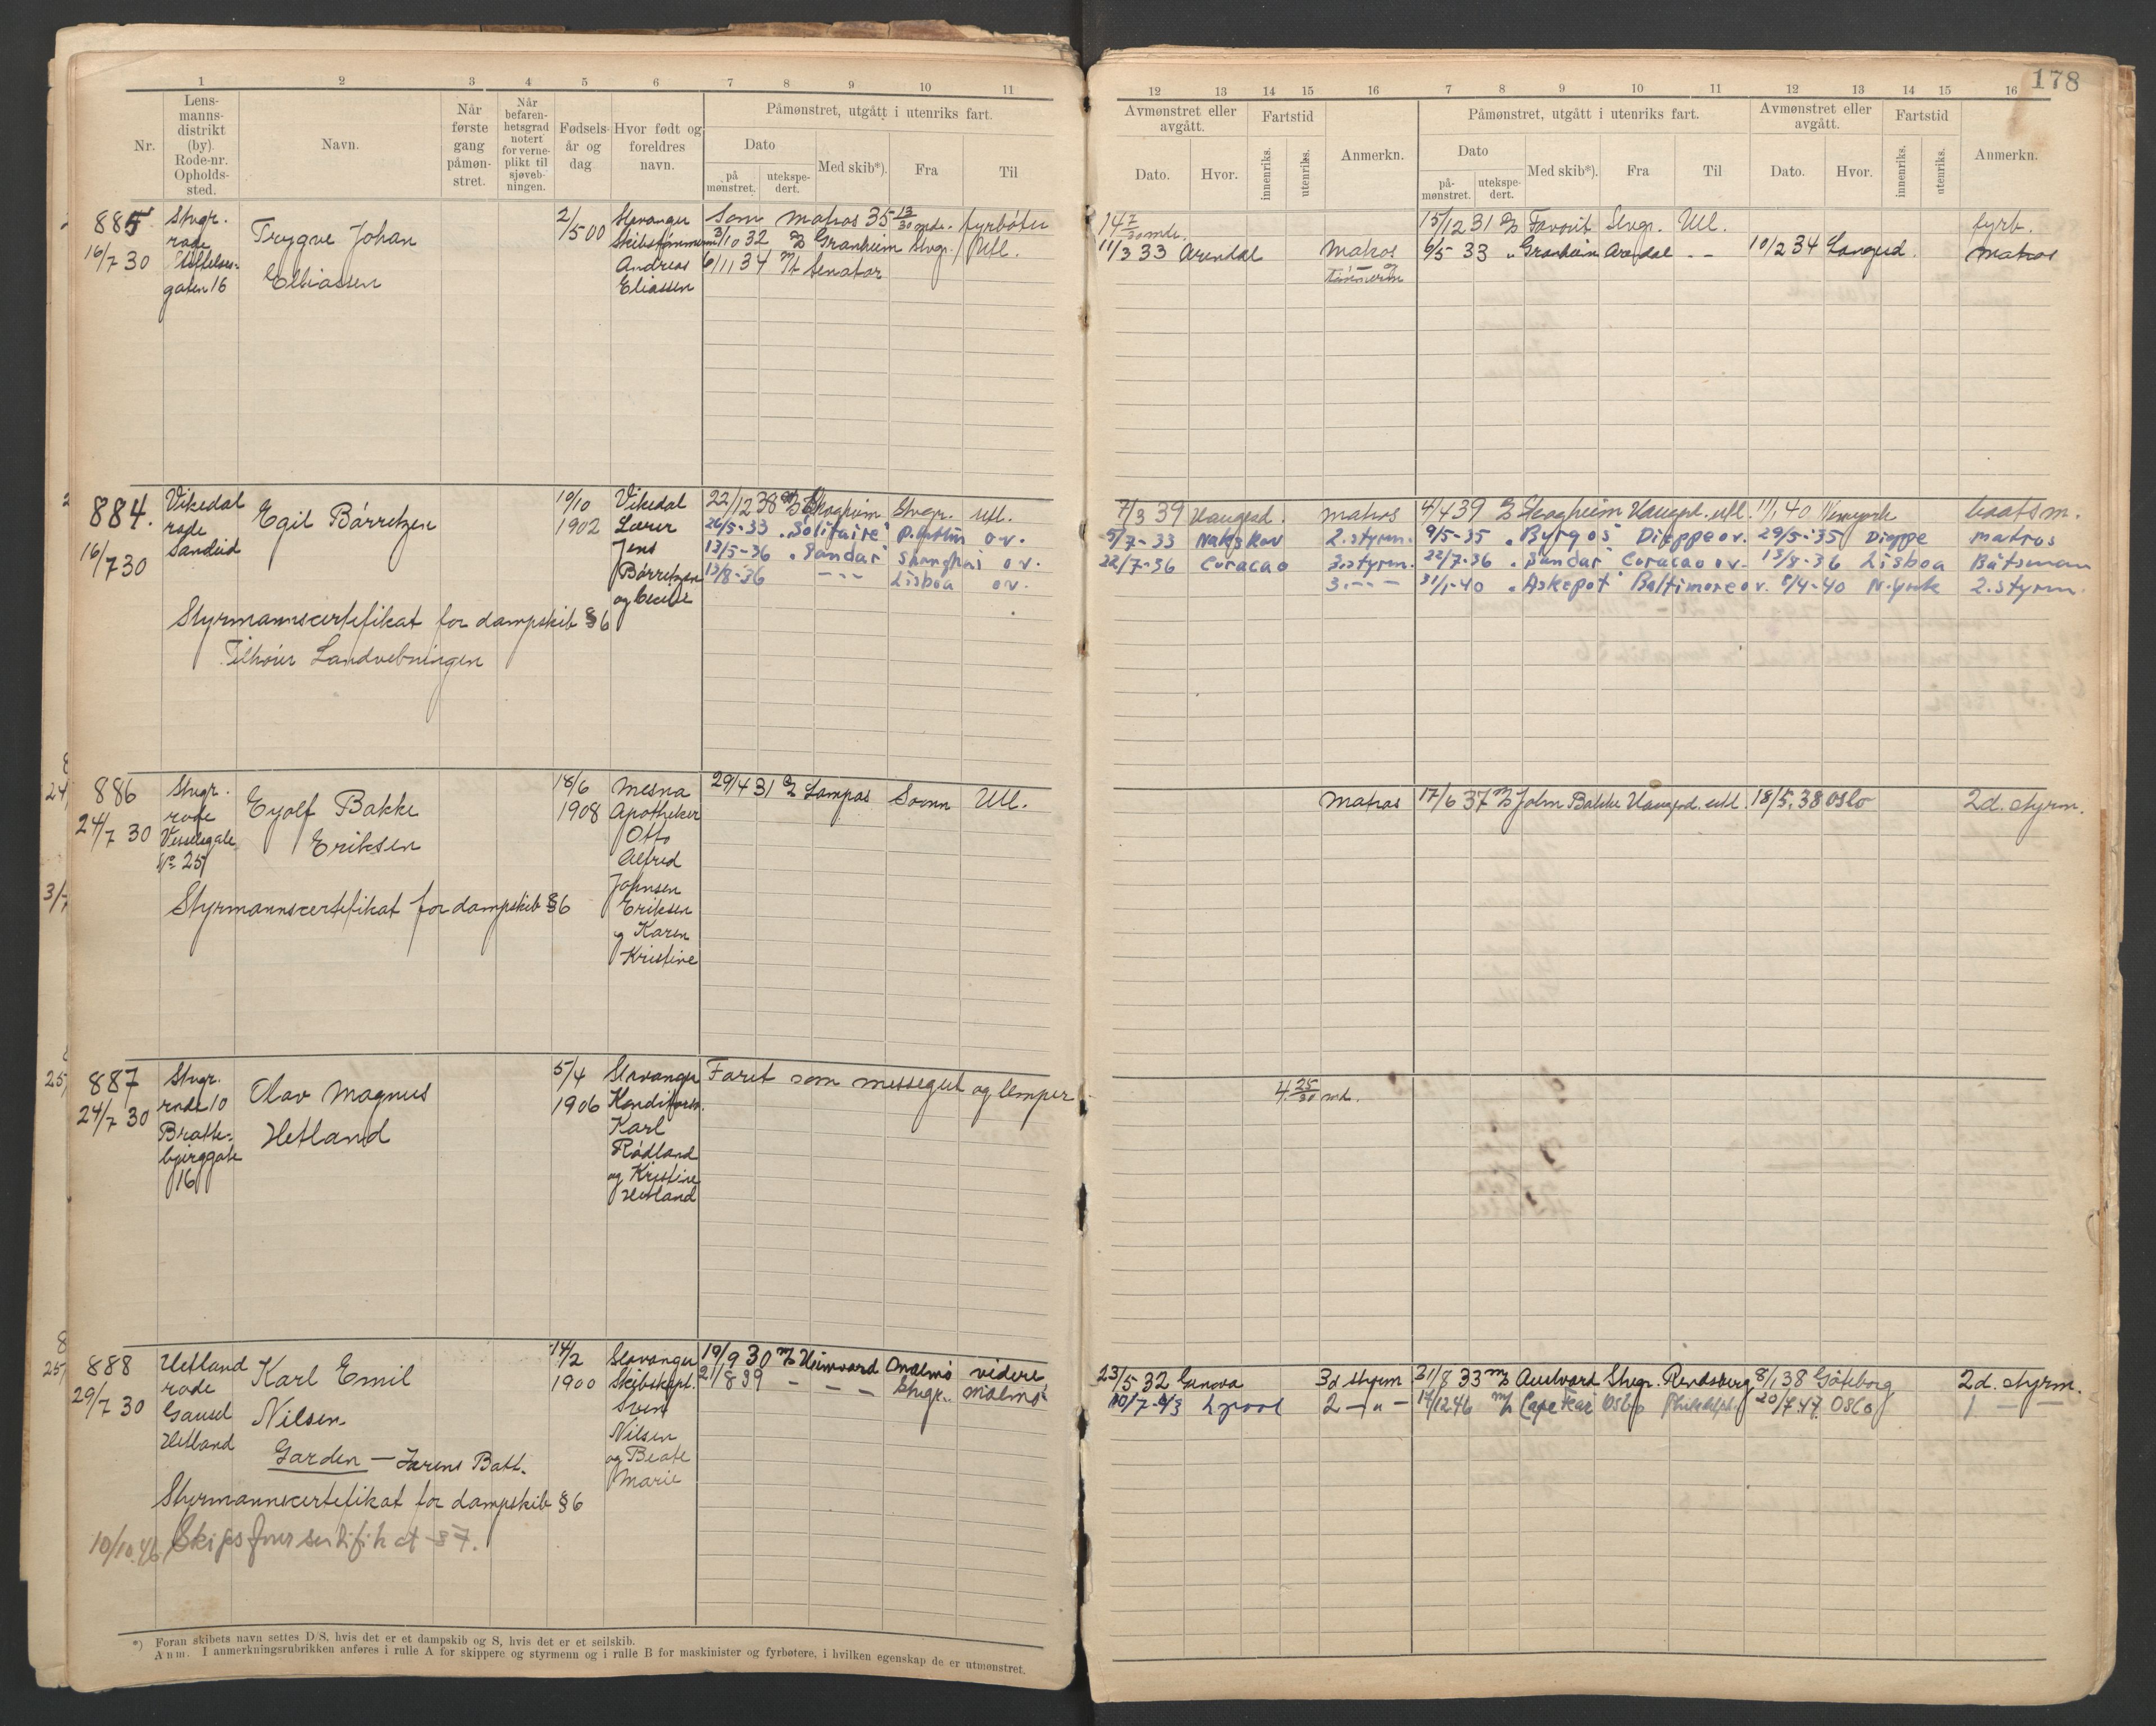 178
1 2 3 4 5 6 7 8 9 10 11
Nr.
Lens-
manns-
distrikt
(by).
Rode-nr.
Opholds-
sted.
Navn.
Når
første
gang
påmøn-
stret.
Når
befaren-
hetsgrad
notert
for verne-
plikt til
sjøveb-
ningen.
Fødsels-
år og
dag
Hvor født og
foreldres
navn.
Påmønstret, utgått i utenriks fart.
Dato
på
mønstret.
utekspe-
dert.
Med skib*).
Fra
Til
12 13 14 15 16 7 8 9 10 11 12 13 14 15 16
Avmønstret eller
avgått.
Dato.
Hvor.
Fartstid
innenriks.
utenriks.
Anmerkn.
Påmønstret, utgått i utenriks fart.
Dato
på-
mønstret.
utekspe-
dert.
Med skib*).
Fra
Til
Avmønstret eller
avgått.
Dato.
Hvor.
Fartstid
innenriks.
utenriks.
Anmerkn.
885
16/7 30
Stvgr.
rode
gaten 16
Trygve Johan
Elliassen
2/5 00
Stavanger
Skibstømmerm.
Andreas
Eliassen
Som matros 35 13/30 mdr. fyrbøter
3/10 32 D/S Granheim Stvgr. Utl.
6/11 34 M/t Senator
14 7/30 mdr.
11/3 33 Arendal Matros
og
Tømmerm
15/12 31 D/S Favorit Stvgr. Utl. fyrb.
6/5 33 " Granheim Arendal - - 10/2 34 Matros
884.
16/7 30
Vikedal
rode
Sandeid
Egil Børretzen
10/10
1902
Vikedal
Lærer
Jens
Børretzen
og Cecilie
22/12 38 Skogheim Stvgr. Utl.
26/5-33 "Solitaire" P. Astin o.v.
13/5-36 "Sandar" Shanghai o.v.
13/8-36 - - - Lisboa o.v.
Styrmannscertifikat for dampskib § 6
Tilhører Landvebningen
7/3 39 Haugesd. Matros 4/4 39 D/S Skogheim Haugsd. utl. 11/1 40 Newyork baatsm.
5/7-33 Nakskov 2. styrm. 9/5-35 "Byrgos" Dieppe o.v. 29/5-35 Dieppe matros
22/7-36 Curacao 3. styrm. 22/7-36 "Sandar" Curacao o.v. 13/8-36 Lisboa Båtsman
3. - - - 31/1-40 "Askepot" Baltimore o.v. 5/4-40 N. York 2. styrm.
886
24/7 30
Stvgr.
rode
Vesselsgate
No 25
Eyolf Bakke
Eriksen
18/6
1908
Mesna
Apotheker
Otto
Alfred
Johnsen
Eriksen
og Karen
Kristine
29/4 31 D/S Lampas Sounn Utl.
Styrmannscertifikat for dampskib § 6
Matros 17/6 37 M/S John Bakke Haugesd. utl. 18/5.38 Oslo 2d. styrm.
887
24/7 30
Stvgr.
rode 10
Bratte-
bjerggate
16
Olav Magnus
Hetland
5/4
1906
Stavanger
Konditorm.
Karl
Rødland
og Kristine
Hetland
Faret som messegut og lemper
4 25/30 md.
888
29/7 30
Hetland
rode
Gausel
Hetland
Karl Emil
Nilsen
Garden - Jærens Batt.
14/2
1900
Stavanger
Skibskapt.
Sven
Nilsen
og Beate
Marie
19/9 30 M/S Heimvard Malmø videre
21/8 39 - - - Stvgr. Malmø
Styrmannscertifikat for dampskib § 6
10/10.46 Skipsførersertifikat §7.
23/5 32 Genova 3d styrm 31/8 33 M/S Austvard Stvgr. Rendsborg 8/1 38 Göteborg 2d. styrm.
10/7-43 Lpool 2 - " - 17/12 46 M/S Cape Fear Oslo Philadelph. 20/7.47. Oslo 1 - -
*) Foran skibets navn settes D/S, hvis det er et dampskib og S, hvis det er et seilskib.
Anm. I anmerkningsrubrikken anføres i rulle A for skippere og styrmenn og i rulle B for maskinister og fyrbøtere, i hvilken egenskap de er utmønstret.